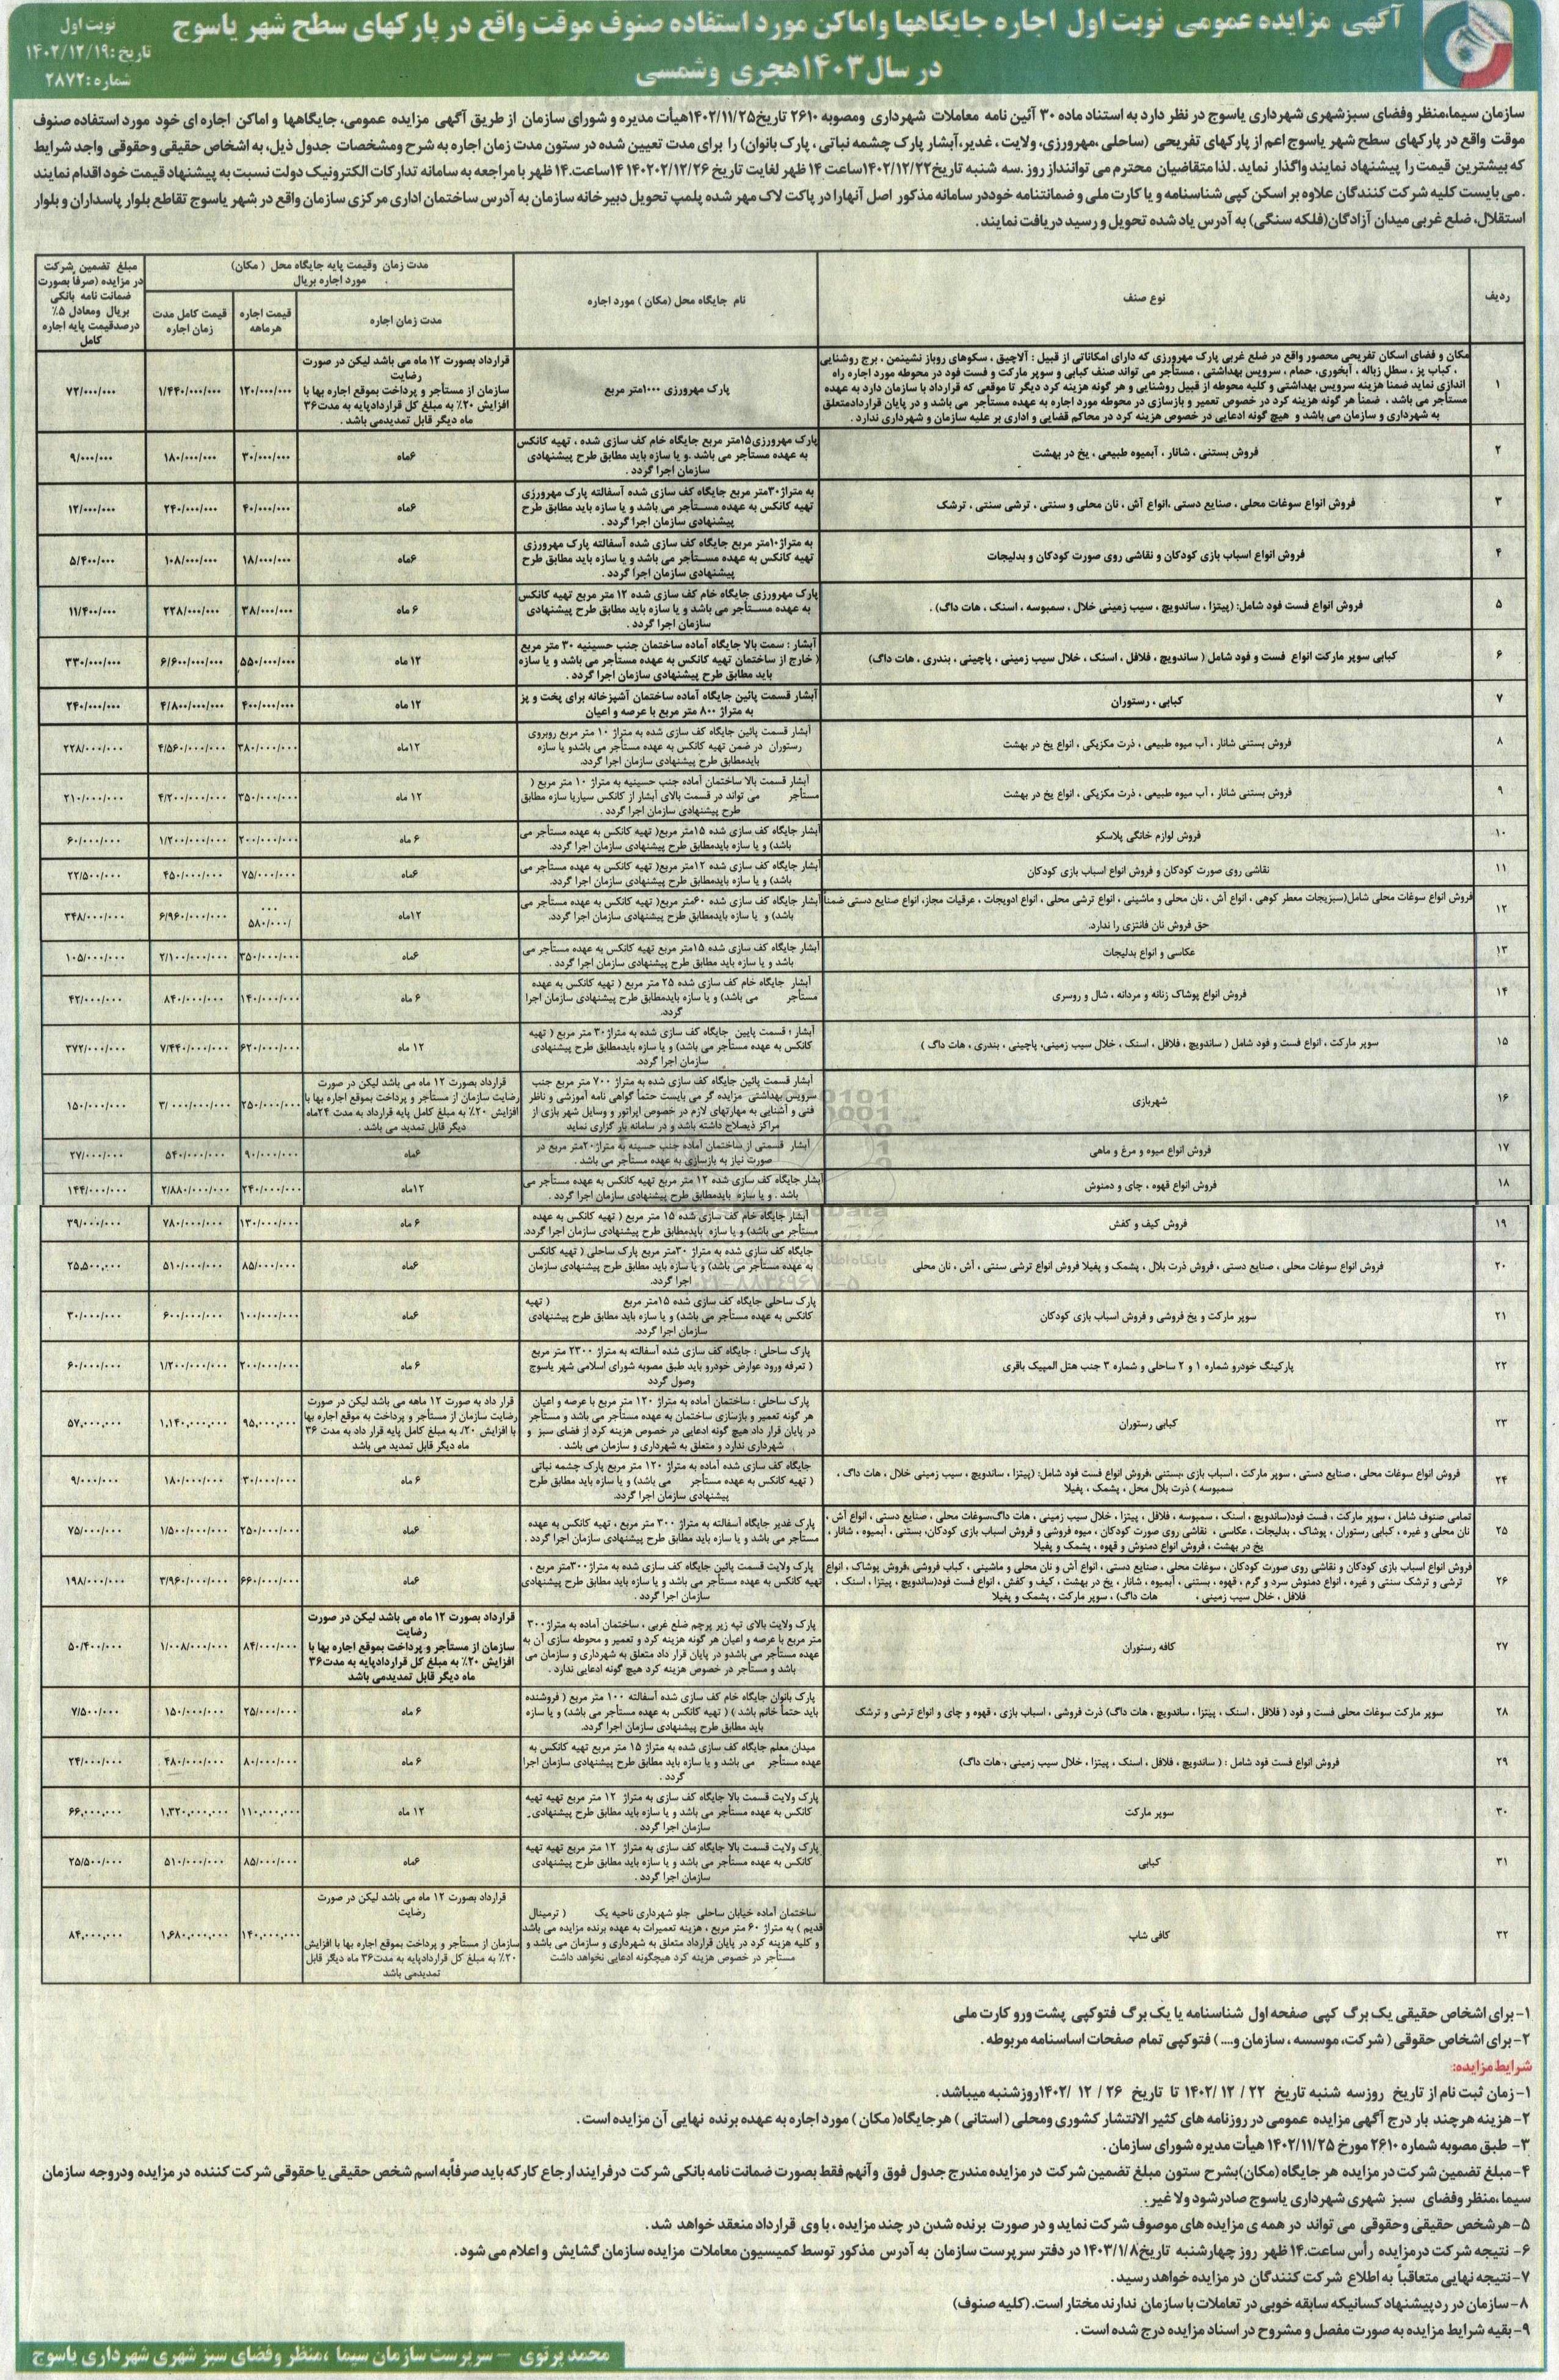 آگهی مزایده عمومی نوبت اول اجاره جایگاهها واماکن مورد استفاده صنوف موقت واقع در پارکهای سطح شهر یاسوج
در سال ۱۴۰۳هجری وشمسی
نوبت اول
تاریخ: ۱۴۰۲/۱۲/۱۹
شماره: ۲۸۷۲
سازمان سیما،منظر وفضای سبزشهری شهرداری یاسوج در نظر دارد به استناد ماده ۳۰ آئین نامه معاملات شهرداری ومصوبه ۲۶۱۰ تاریخ۱۴۰۲/۱۱/۲۵هیأت مدیره و شورای سازمان از طریق آگهی مزایده عمومی، جایگاهها و اماکن اجاره ای خود مورد استفاده صنوف
موقت واقع در پارکهای سطح شهر یاسوج اعم از پارکهای تفریحی (ساحلی ،مهرورزی، ولایت ، غدیر،آبشار پارک چشمه نباتی ، پارک بانوان) را برای مدت تعیین شده در ستون مدت زمان اجاره به شرح ومشخصات جدول ذیل، به اشخاص حقیقی وحقوقی واجد شرایط
که بیشترین قیمت را پیشنهاد نمایند واگذار نماید . لذا متقاضیان محترم می توانند از روز .سه شنبه تاریخ۱۴۰۲/۱۲/۲۲ساعت ۱۴ ظهر لغایت تاریخ ۱۴۰۲۰۲/۱۲/۲۶ ۱۴ساعت.۱۴ ظهر با مراجعه به سامانه تدارکات الکترونیک دولت نسبت به پیشنهاد قیمت خود اقدام نمایند
. می بایست کلیه شرکت کنندگان علاوه بر اسکن کپی شناسنامه و یا کارت ملی و ضمانتنامه خوددر سامانه مذکور اصل آنهارا در پاکت لاک مهر شده پلمپ تحویل دبیرخانه سازمان به آدرس ساختمان اداری مرکزی سازمان واقع در شهر یاسوج تقاطع بلوار پاسداران و بلوار
استقلال، ضلع غربی میدان آزادگان(فلکه سنگی) به آدرس یاد شده تحویل و رسید دریافت نمایند.
ردیف
نوع صنف
نام جایگاه محل (مکان ) مورد اجاره
مدت زمان وقیمت پایه جایگاه محل ( مکان)
مورد اجاره بریال
مدت زمان اجاره
قیمت اجاره هرماهه
قیمت کامل مدت زمان اجاره
مبلغ تضمین شرکت
در مزایده (صرفاً بصورت
ضمانت نامه بانکی
بریال ومعادل ۵٪
درصدقیمت پایه اجاره
کامل
۱
مکان و فضای اسکان تفریحی محصور واقع در ضلع غربی پارک مهرورزی که دارای امکاناتی از قبیل : آلاچیق ، سکوهای روباز نشیمن ، برج روشنایی
، کباب پز ، سطل زباله ، آبخوری، حمام ، سرویس بهداشتی ، مستأجر می تواند صنف کبابی و سوپر مارکت و فست فود در محوطه مورد اجاره راه
اندازی نماید ضمناً هزینه سرویس بهداشتی و کلیه محوطه از قبیل روشنایی و هر گونه هزینه کرد دیگر تا موقعی که قرارداد با سازمان دارد به عهده
مستأجر می باشد ، ضمناً هر گونه هزینه کرد در خصوص تعمیر و بازسازی در محوطه مورد اجاره به عهده مستأجر می باشد و در پایان قراردادمتعلق
به شهرداری و سازمان می باشد و هیچ گونه ادعایی در خصوص هزینه کرد در محاکم قضایی و اداری بر علیه سازمان و شهرداری ندارد .
پارک مهرورزی ۱۰۰۰متر مربع
قرارداد بصورت ۱۲ ماه می باشد لیکن در صورت
رضایت
سازمان از مستأجر و پرداخت بموقع اجاره بها با
افزایش ۲۰٪ به مبلغ کل قراردادپایه به مدت۳۶
ماه دیگر قابل تمدیدمی باشد .
۱۲۰/۰۰۰/۰۰۰
۱/۴۴۰/۰۰۰/۰۰۰
۷۲/۰۰۰/۰۰۰
۲
فروش بستنی ، شانار ، آبمیوه طبیعی ، یخ در بهشت
پارک مهرورزی۱۵متر مربع جایگاه خام کف سازی شده ، تهیه کانکس
به عهده مستأجر می باشد .و یا سازه باید مطابق طرح پیشنهادی
سازمان اجرا گردد .
۶ماه
۳۰/۰۰۰/۰۰۰
۱۸۰/۰۰۰/۰۰۰
۹/۰۰۰/۰۰۰
۳
فروش انواع سوغات محلی ، صنایع دستی ،انواع آش ، نان محلی و سنتی ، ترشی سنتی ، ترشک
به متراژ۳۰متر مربع جایگاه کف سازی شده آسفالته پارک مهرورزی
تهیه کانکس به عهده مستأجر می باشد و یا سازه باید مطابق طرح
پیشنهادی سازمان اجرا گردد .
۶ماه
۴۰/۰۰۰/۰۰۰
۲۴۰/۰۰۰/۰۰۰
۱۲/۰۰۰/۰۰۰
۴
فروش انواع اسباب بازی کودکان و نقاشی روی صورت کودکان و بدلیجات
به متراژ۱۰متر مربع جایگاه کف سازی شده آسفالته پارک مهرورزی
تهیه کانکس به عهده مستأجر می باشد و یا سازه باید مطابق طرح
پیشنهادی سازمان اجرا گردد .
۶ماه
۱۸/۰۰۰/۰۰۰
۱۰۸/۰۰۰/۰۰۰
۵/۴۰۰/۰۰۰
۵
فروش انواع فست فود شامل: (پیتزا ، ساندویچ ، سیب زمینی خلال ، سمبوسه ، اسنک ، هات داگ) .
پارک مهرورزی جایگاه خام کف سازی شده ۱۲ متر مربع تهیه کانکس
به عهده مستأجر می باشد و یا سازه باید مطابق طرح پیشنهادی
سازمان اجرا گردد .
۶ ماه
۳۸/۰۰۰/۰۰۰
۲۲۸/۰۰۰/۰۰۰
۱۱/۴۰۰/۰۰۰
۶
کبابی سوپر مارکت انواع فست و فود شامل ( ساندویچ ، فلافل ، اسنک ، خلال سیب زمینی ، پاچینی ، بندری ، هات داگ)
آبشار : سمت بالا جایگاه آماده ساختمان جنب حسینیه ۳۰ متر مربع
( خارج از ساختمان تهیه کانکس به عهده مستأجر می باشد و یا سازه
باید مطابق طرح پیشنهادی سازمان اجرا گردد .
۱۲ ماه
۵۵۰/۰۰۰/۰۰۰
۶/۶۰۰/۰۰۰/۰۰۰
۳۳۰/۰۰۰/۰۰۰
۷
کبابی ، رستوران
آبشار قسمت پائین جایگاه آماده ساختمان آشپزخانه برای پخت و پز
به متراژ ۸۰۰ متر مربع با عرصه و اعیان
۱۲ ماه
۴۰۰/۰۰۰/۰۰۰
۴/۸۰۰/۰۰۰/۰۰۰
۲۴۰/۰۰۰/۰۰۰
۸
فروش بستنی شانار ، آب میوه طبیعی ، ذرت مکزیکی ، انواع یخ در بهشت
آبشار قسمت پائین جایگاه کف سازی شده به متراژ ۱۰ متر مربع روبروی
رستوران در ضمن تهیه کانکس به عهده مستأجر می باشدو یا سازه
بایدمطابق طرح پیشنهادی سازمان اجرا گردد.
۱۲ماه
۳۸۰/۰۰۰/۰۰۰
۴/۵۶۰/۰۰۰/۰۰۰
۲۲۸/۰۰۰/۰۰۰
۹
فروش بستنی شانار ، آب میوه طبیعی ، ذرت مکزیکی ، انواع یخ در بهشت
آبشار قسمت بالا ساختمان آماده جنب حسینیه به متراژ ۱۰ متر مربع (
مستأجر می تواند در قسمت بالای آبشار از کانکس سیاریا سازه مطابق
طرح پیشنهادی سازمان اجرا گردد .
۱۲ ماه
۳۵۰/۰۰۰/۰۰۰
۴/۲۰۰/۰۰۰/۰۰۰
۲۱۰/۰۰۰/۰۰۰
۱۰
فروش لوازم خانگی پلاسکو
آبشار جایگاه کف سازی شده ۱۵متر مربع( تهیه کانکس به عهده مستأجر می
باشد) و یا سازه بایدمطابق طرح پیشنهادی سازمان اجرا گردد.
۶ ماه
۲۰۰/۰۰۰/۰۰۰
۱/۲۰۰/۰۰۰/۰۰۰
۶۰/۰۰۰/۰۰۰
۱۱
نقاشی روی صورت کودکان و فروش انواع اسباب بازی کودکان
آبشار جایگاه کف سازی شده ۱۲متر مربع( تهیه کانکس به عهده مستأجر می
باشد) و یا سازه بایدمطابق طرح پیشنهادی سازمان اجرا گردد.
۶ماه
۷۵/۰۰۰/۰۰۰
۴۵۰/۰۰۰/۰۰۰
۲۲/۵۰۰/۰۰۰
۱۲
فروش انواع سوغات محلی شامل(سبزیجات معطر کوهی ، انواع آش ، نان محلی و ماشینی ، انواع ترشی محلی ، انواع ادویجات ، عرقیات مجاز، انواع صنایع دستی ضمناً
حق فروش نان فانتزی را ندارد.
آبشار جایگاه کف سازی شده ۶۰متر مربع( تهیه کانکس به عهده مستأجر می
باشد) و یا سازه بایدمطابق طرح پیشنهادی سازمان اجرا گردد.
۱۲ماه
۰۰۰
۵۸۰/۰۰۰/
۶/۹۶۰/۰۰۰/۰۰۰
۳۴۸/۰۰۰/۰۰۰
۱۳
عکاسی و انواع بدلیجات
آبشار جایگاه کف سازی شده ۱۵متر مربع تهیه کانکس به عهده مستأجر می
باشد و یا سازه باید مطابق طرح پیشنهادی سازمان اجرا گردد .
۶ماه
۳۵۰/۰۰۰/۰۰۰
۲/۱۰۰/۰۰۰/۰۰۰
۱۰۵/۰۰۰/۰۰۰
۱۴
فروش انواع پوشاک زنانه و مردانه ، شال و روسری
آبشار جایگاه خام کف سازی شده ۲۵ متر مربع ( تهیه کانکس به عهده
مستأجر می باشد) و یا سازه بایدمطابق طرح پیشنهادی سازمان اجرا
گردد.
۶ ماه
۱۴۰/۰۰۰/۰۰۰
۸۴۰/۰۰۰/۰۰۰
۴۲/۰۰۰/۰۰۰
۱۵
سوپر مارکت ، انواع فست و فود شامل ( ساندویچ ، فلافل ، اسنک ، خلال سیب زمینی، پاچینی ، بندری ، هات داگ )
آبشار ؛ قسمت پایین جایگاه کف سازی شده به متراژ۳۰ متر مربع ( تهیه
کانکس به عهده مستأجر می باشد) و یا سازه بایدمطابق طرح پیشنهادی
سازمان اجرا گردد.
۱۲ ماه
۶۲۰/۰۰۰/۰۰۰
۷/۴۴۰/۰۰۰/۰۰۰
۳۷۲/۰۰۰/۰۰۰
۱۶
شهربازی
آبشار قسمت پائین جایگاه کف سازی شده به متراژ ۷۰۰ متر مربع جنب
سرویس بهداشتی مزایده گر می بایست حتماً گواهی نامه آموزشی و ناظر
فنی و آشنایی به مهارتهای لازم در خصوص اپراتور و وسایل شهر بازی از
مراکز ذیصلاح داشته باشد و در سامانه بار گزاری نماید
قرارداد بصورت ۱۲ ماه می باشد لیکن در صورت
رضایت سازمان از مستأجر و پرداخت بموقع اجاره بها با
افزایش ۲۰٪ به مبلغ کامل پایه قرارداد به مدت ۲۴ماه
دیگر قابل تمدید می باشد .
۲۵۰/۰۰۰/۰۰۰
۳/ ۰۰۰/۰۰۰/۰۰۰
۱۵۰/۰۰۰/۰۰۰
۱۷
فروش انواع میوه و مرغ و ماهی
آبشار قسمتی از ساختمان آماده جنب حسینه به متراژ۲۰متر مربع در
صورت نیاز به بازسازی به عهده مستأجر می باشد .
۶ماه
۹۰/۰۰۰/۰۰۰
۵۴۰/۰۰۰/۰۰۰
۲۷/۰۰۰/۰۰۰
۱۸
فروش انواع قهوه ، چای و دمنوش
آبشار جایگاه کف سازی شده ۱۲ متر مربع تهیه کانکس به عهده مستأجر می
باشد . و یا سازه بایدمطابق طرح پیشنهادی سازمان اجرا گردد .
۱۲ماه
۲۴۰/۰۰۰/۰۰۰
۲/۸۸۰/۰۰۰/۰۰۰
۱۴۴/۰۰۰/۰۰۰
۱۹
فروش کیف و کفش
آبشار جایگاه خام کف سازی شده ۱۵ متر مربع ( تهیه کانکس به عهده
مستأجر می باشد) و یا سازه بایدمطابق طرح پیشنهادی سازمان اجرا گردد.
۶ ماه
۱۳۰/۰۰۰/۰۰۰
۷۸۰/۰۰۰/۰۰۰
۳۹/۰۰۰/۰۰۰
۲۰
فروش انواع سوغات محلی ، صنایع دستی ، فروش ذرت بلال ، پشمک و پفیلا فروش انواع ترشی سنتی ، آش ، نان محلی
جایگاه کف سازی شده به متراژ ۳۰متر مربع پارک ساحلی ( تهیه کانکس
به عهده مستأجر می باشد) و یا سازه باید مطابق طرح پیشنهادی سازمان
اجرا گردد.
۶ماه
۸۵/۰۰۰/۰۰۰
۵۱۰/۰۰۰/۰۰۰
۲۵,۵۰۰,۰۰۰
۲۱
سوپر مارکت و یخ فروشی و فروش اسباب بازی کودکان
پارک ساحلی جایگاه کف سازی شده ۱۵متر مربع ( تهیه
کانکس به عهده مستأجر می باشد) و یا سازه باید مطابق طرح پیشنهادی
سازمان اجرا گردد.
۶ماه
۱۰۰/۰۰۰/۰۰۰
۶۰۰/۰۰۰/۰۰۰
۳۰/۰۰۰/۰۰۰
۲۲
پارکینگ خودرو شماره ۱ و ۲ ساحلی و شماره ۳ جنب هتل المپیک باقری
پارک ساحلی : جایگاه کف سازی شده آسفالته به متراژ ۲۳۰۰ متر مربع
( تعرفه ورود عوارض خودرو باید طبق مصوبه شورای اسلامی شهر یاسوج
وصول گردد
۶ ماه
۲۰۰/۰۰۰/۰۰۰
۱/۲۰۰/۰۰۰/۰۰۰
۶۰/۰۰۰/۰۰۰
۲۳
کبابی رستوران
پارک ساحلی : ساختمان آماده به متراژ ۱۲۰ متر مربع با عرصه و اعیان
هر گونه تعمیر و بازسازی ساختمان به عهده مستأجر می باشد و مستأجر
در پایان قرار داد هیچ گونه ادعایی در خصوص هزینه کرد از فضای سبز و
شهرداری ندارد و متعلق به شهرداری و سازمان می باشد .
قرار داد به صورت ۱۲ ماهه می باشد لیکن در صورت
رضایت سازمان از مستأجر و پرداخت به موقع اجاره بها
با افزایش ۲۰٪ به مبلغ کامل پایه قرار داد به مدت ۳۶
ماه دیگر قابل تمدید می باشد
۹۵,۰۰۰,۰۰۰
۱,۱۴۰,۰۰۰,۰۰۰
۵۷,۰۰۰,۰۰۰
۲۴
فروش انواع سوغات محلی ، صنایع دستی ، سوپر مارکت ، اسباب بازی ،بستنی ،فروش انواع فست فود شامل: (پیتزا ، ساندویچ ، سیب زمینی خلال ، هات داگ ،
سمبوسه ) ذرت بلال محل ، پشمک ، پفیلا
جایگاه کف سازی شده آماده به متراژ ۱۲۰ متر مربع پارک چشمه نباتی
( تهیه کانکس به عهده مستأجر می باشد) و یا سازه باید مطابق طرح
پیشنهادی سازمان اجرا گردد.
۶ ماه
۳۰/۰۰۰/۰۰۰
۱۸۰/۰۰۰/۰۰۰
۹/۰۰۰/۰۰۰
۲۵
تمامی صنوف شامل ، سوپر مارکت ، فست فود(ساندویچ ، اسنک ، سمبوسه ، فلافل ، پیتزا ، خلال سیب زمینی ، هات داگ،سوغات محلی ، صنایع دستی ، انواع آش ،
نان محلی و غیره ، کبابی رستوران ، پوشاک ، بدلیجات ، عکاسی ، نقاشی روی صورت کودکان ، میوه فروشی و فروش اسباب بازی کودکان، بستنی ، آبمیوه ، شانار ،
یخ در بهشت ، فروش انواع دمنوش و قهوه ، پشمک و پفیلا
پارک غدیر جایگاه آسفالته به متراژ ۳۰۰ متر مربع ، تهیه کانکس به عهده
مستأجر می باشد و یا سازه باید مطابق طرح پیشنهادی سازمان اجرا گردد .
۶ماه
۲۵۰/۰۰۰/۰۰۰
۱/۵۰۰/۰۰۰/۰۰۰
۷۵/۰۰۰/۰۰۰
۲۶
فروش انواع اسباب بازی کودکان و نقاشی روی صورت کودکان ، سوغات محلی ، صنایع دستی ، انواع آش و نان محلی و ماشینی ، کباب فروشی ،فروش پوشاک ، انواع
ترشی و ترشک سنتی و غیره ، انواع دمنوش سرد و گرم ، قهوه ، بستنی ، آبمیوه ، شانار ، یخ در بهشت ، کیف و کفش ، انواع فست فود(ساندویچ ، پیتزا ، اسنک ،
فلافل ، خلال سیب زمینی ، هات داگ) ، سوپر مارکت ، پشمک و پفیلا
پارک ولایت قسمت پائین جایگاه کف سازی شده به متراژ۳۰۰متر مربع ،
تهیه کانکس به عهده مستأجر می باشد و یا سازه باید مطابق طرح پیشنهادی
سازمان اجرا گردد .
۶ماه
۶۶۰/۰۰۰/۰۰۰
۳/۹۶۰/۰۰۰/۰۰۰
۱۹۸/۰۰۰/۰۰۰
۲۷
کافه رستوران
پارک ولایت بالای تپه زیر پرچم ضلع غربی ، ساختمان آماده به متراژ۳۰۰
متر مربع با عرصه و اعیان هر گونه هزینه کرد و تعمیر و محوطه سازی آن به
عهده مستأجر می باشدو در پایان قرار داد متعلق به شهرداری و سازمان می
باشد و مستأجر در خصوص هزینه کرد هیچ گونه ادعایی ندارد .
قرارداد بصورت ۱۲ ماه می باشد لیکن در صورت
رضایت
سازمان از مستأجر و پرداخت بموقع اجاره بها با
افزایش ۲۰٪ به مبلغ کل قراردادپایه به مدت۳۶
ماه دیگر قابل تمدیدمی باشد
۸۴/۰۰۰/۰۰۰
۱/۰۰۸/۰۰۰/۰۰۰
۵۰/۴۰۰/۰۰۰
۲۸
سوپر مارکت سوغات محلی فست و فود ( فلافل ، اسنک ، پیتزا ، ساندویچ ، هات داگ) ذرت فروشی ، اسباب بازی ، قهوه و چای و انواع ترشی و ترشک
پارک بانوان جایگاه خام کف سازی شده آسفالته ۱۰۰ متر مربع ( فروشنده
باید حتماً خانم باشد ) ( تهیه کانکس به عهده مستأجر می باشد) و یا سازه
باید مطابق طرح پیشنهادی سازمان اجرا گردد.
۶ ماه
۲۵/۰۰۰/۰۰۰
۱۵۰/۰۰۰/۰۰۰
۷/۵۰۰/۰۰۰
۲۹
فروش انواع فست فود شامل : ( ساندویچ ، فلافل ، اسنک ، پیتزا ، خلال سیب زمینی ، هات داگ)
میدان معلم جایگاه کف سازی شده به متراژ ۱۵ متر مربع تهیه کانکس به
عهده مستأجر می باشد و یا سازه باید مطابق طرح پیشنهادی سازمان اجرا
گردد .
۶ ماه
۸۰/۰۰۰/۰۰۰
۴۸۰/۰۰۰/۰۰۰
۲۴/۰۰۰/۰۰۰
۳۰
سوپر مارکت
پارک ولایت قسمت بالا جایگاه کف سازی به متراژ ۱۲ متر مربع تهیه تهیه
کانکس به عهده مستأجر می باشد و یا سازه باید مطابق طرح پیشنهادی
سازمان اجرا گردد .
۱۲ ماه
۱۱۰,۰۰۰,۰۰۰
۱,۳۲۰,۰۰۰,۰۰۰
۶۶,۰۰۰,۰۰۰
۳۱
کبابی
پارک ولایت قسمت بالا جایگاه کف سازی به متراژ ۱۲ متر مربع تهیه تهیه
کانکس به عهده مستأجر می باشد و یا سازه باید مطابق طرح پیشنهادی
سازمان اجرا گردد .
۶ماه
۸۵/۰۰۰/۰۰۰
۵۱۰/۰۰۰/۰۰۰
۲۵/۵۰۰/۰۰۰
۳۲
کافی شاپ
ساختمان آماده خیابان ساحلی جلو شهرداری ناحیه یک ( ترمینال
قدیم ) به متراژ ۶۰ متر مربع ، هزینه تعمیرات به عهده برنده مزایده می باشد
و کلیه هزینه کرد در پایان قرارداد متعلق به شهرداری و سازمان می باشد و
مستأجر در خصوص هزینه کرد هیچگونه ادعایی نخواهد داشت
قرارداد بصورت ۱۲ ماه می باشد لیکن در صورت
رضایت
سازمان از مستأجر و پرداخت بموقع اجاره بها با افزایش
۲۰٪ به مبلغ کل قراردادپایه به مدت۳۶ ماه دیگر قابل
تمدیدمی باشد
۱۴۰,۰۰۰,۰۰۰
۱,۶۸۰,۰۰۰,۰۰۰
۸۴,۰۰۰,۰۰۰
۱- برای اشخاص حقیقی یک برگ کپی صفحه اول شناسنامه یا یک برگ فتوکپی پشت ورو کارت ملی
۲- برای اشخاص حقوقی ( شرکت، موسسه ، سازمان و.... ) فتوکپی تمام صفحات اساسنامه مربوطه .
شرایط مزایده:
۱- زمان ثبت نام از تاریخ روزسه شنبه تاریخ ۲۲ / ۱۲ /۱۴۰۲ تا تاریخ ۲۶ / ۱۲ /۱۴۰۲روزشنبه میباشد .
۲- هزینه هرچند بار درج آگهی مزایده عمومی در روزنامه های کثیر الانتشار کشوری ومحلی ( استانی ) هرجایگاه( مکان ) مورد اجاره به عهده برنده نهایی آن مزایده است .
۳- طبق مصوبه شماره ۲۶۱۰ مورخ ۱۴۰۲/۱۱/۲۵ هیأت مدیره شورای سازمان .
۴- مبلغ تضمین شرکت در مزایده هر جایگاه (مکان)بشرح ستون مبلغ تضمین شرکت در مزایده مندرج جدول فوق وآنهم فقط بصورت ضمانت نامه بانکی شرکت درفرایند ارجاع کارکه باید صرفاًبه اسم شخص حقیقی یا حقوقی شرکت کننده در مزایده ودروجه سازمان
سیما،منظر وفضای سبز شهری شهرداری یاسوج صادرشود ولا غیر.
۵- هرشخص حقیقی وحقوقی می تواند در همه ی مزایده های موصوف شرکت نماید و در صورت برنده شدن در چند مزایده ، با وی قرارداد منعقد خواهد شد .
۶- نتیجه شرکت درمزایده رأس ساعت.۱۴ظهر روز چهارشنبه تاریخ۱۴۰۳/۱/۸ در دفتر سرپرست سازمان به آدرس مذکور توسط کمیسیون معاملات مزایده سازمان گشایش و اعلام می شود .
۷- نتیجه نهایی متعاقباً به اطلاع شرکت کنندگان در مزایده خواهد رسید .
۸- سازمان در رد پیشنهاد کسانیکه سابقه خوبی در تعاملات با سازمان ندارند مختار است. (کلیه صنوف)
۹- بقیه شرایط مزایده به صورت مفصل و مشروح در اسناد مزایده درج شده است .
محمد پرتوی – سرپرست سازمان سیما ،منظر وفضای سبز شهری شهرداری یاسوج